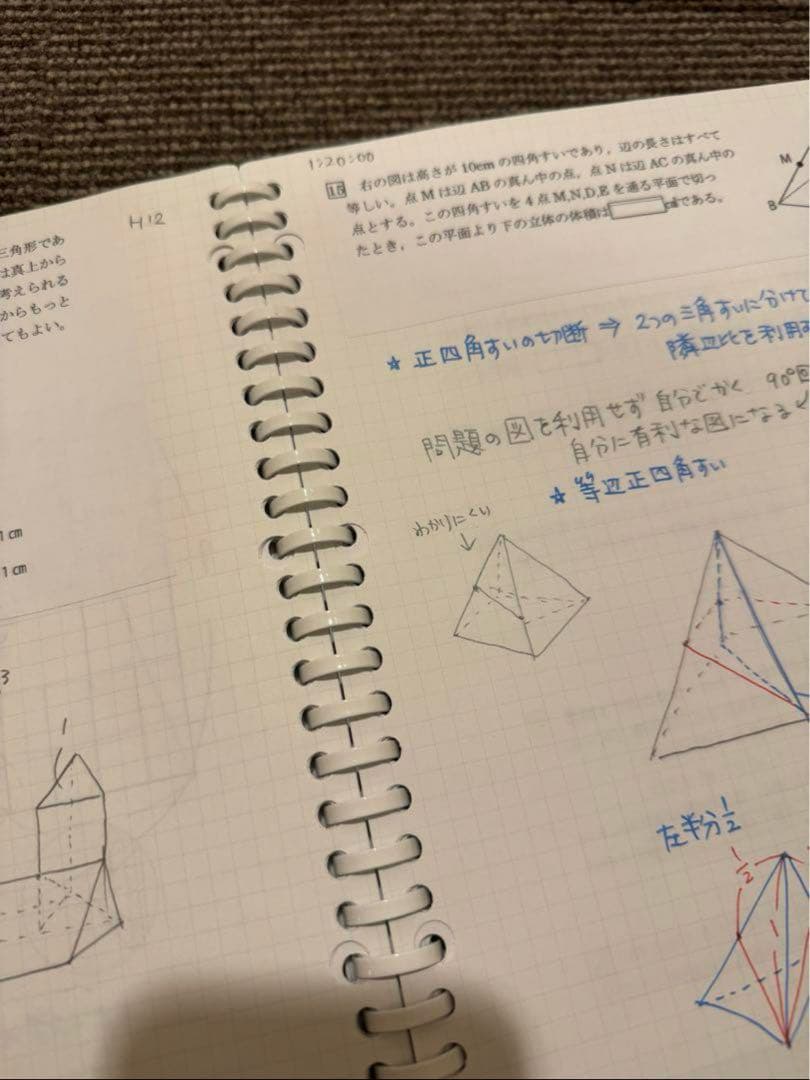 H12
三角形であ
は真上から
考えられる
からもっと
てもよい。
1cm
1cm
3
1
1:20:00
15 右の図は高さが10cmの四角すいであり，辺の長さはすべて
等しい。点Mは辺ABの真ん中の点，点Nは辺ACの真ん中の
点とする。この四角すいを4点M,N,D,Eを通る平面で切っ
たとき，この平面より下の立体の体積は cm³である。
M
B
☆ 正四角すいの切断 ⇒ 2つの三角すいに分けて
隣辺比を利用
問題の図を利用せず自分でかく 90°回
自分に有利な図になる✓
☆ 等辺正四角すい
わかりにくい
↓
左半分1/2
1/2